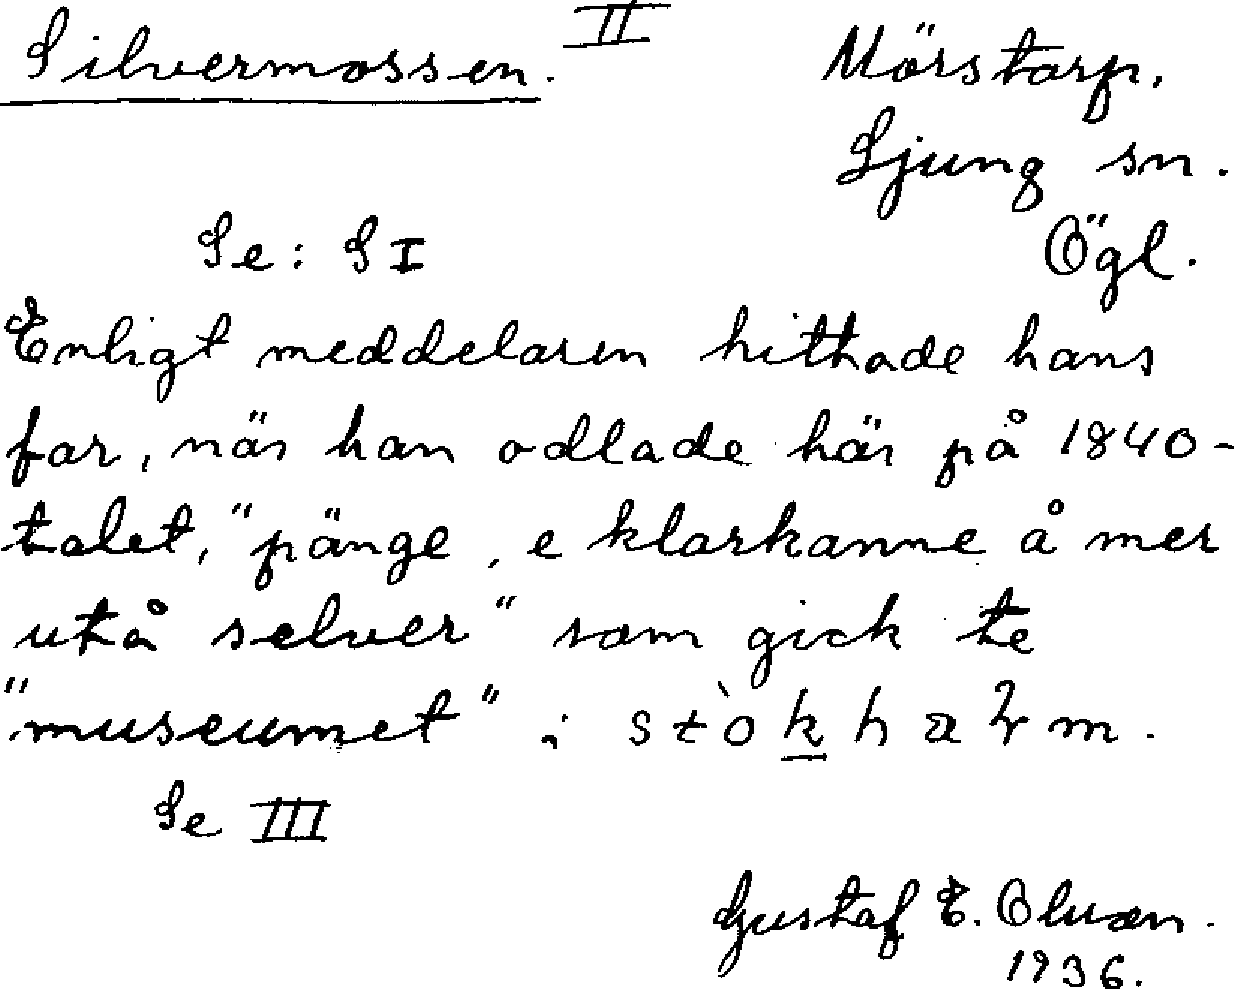 Silvermossen. II Mörstorp.
Ljung sn.
Se: S I Ögl.
Enligt meddelaren hittade hans
far, när han odlade här på 1840-
talet, "pänge, e klarkanne å mer
utå selver" som gick te
"museumet" i
Se III
Gustaf E. Olwæn.
1936.